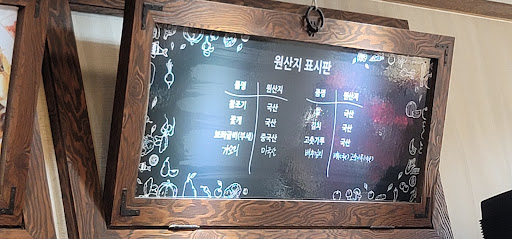 원산지 표시판
품명 원산지 품명 원산지
불고기 국산 국산
꽃게 국산 김치 국산
보리굴비(부세) 중국산 고춧가루 국산
가오리